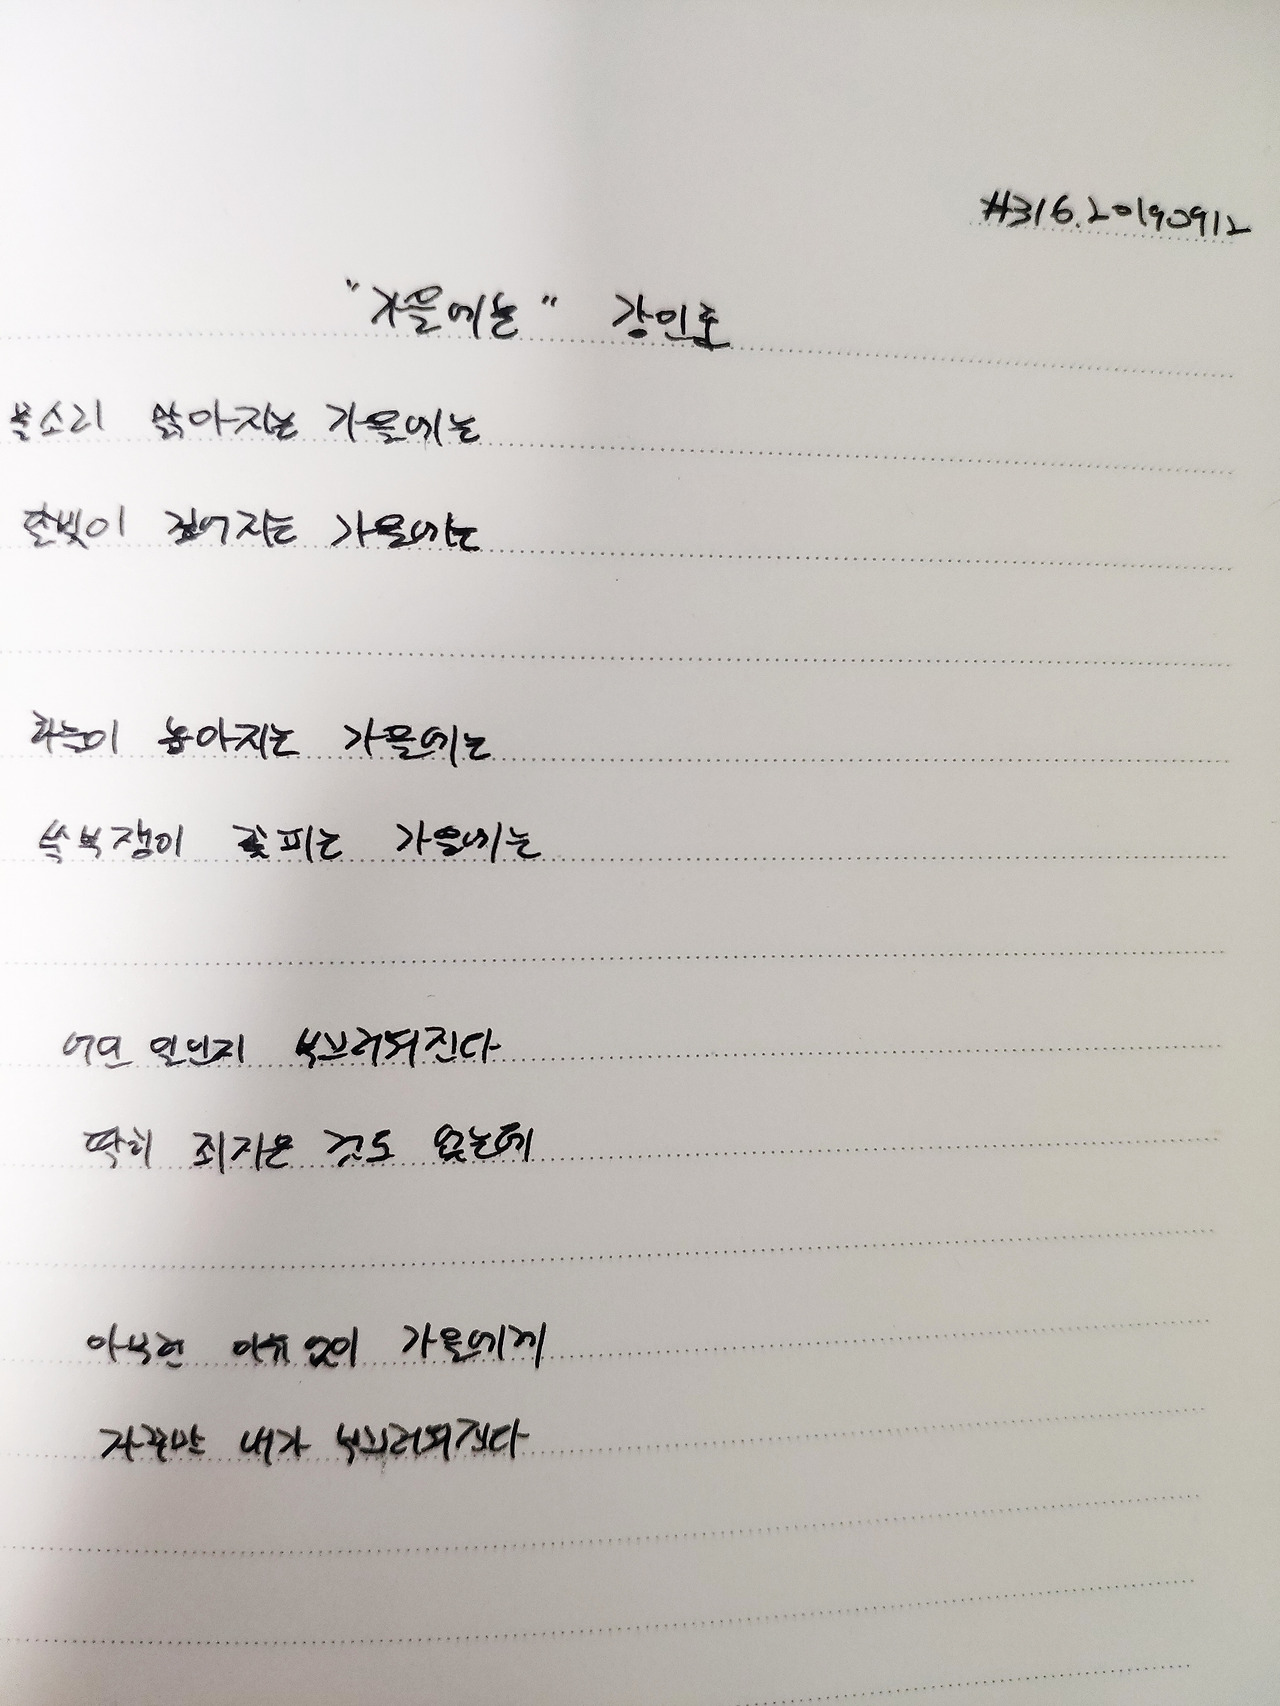 #316.20190912
"가을에는" 강인호
물소리 맑아지는 가을에는
달빛이 깊어지는 가을에는
하늘이 높아지는 가을에는
쑥부쟁이 꽃피는 가을에는
어인 일인지 부끄러워진다
딱히 죄지은 것도 없는데
아무런 이유없이 가을에게
자꾸만 내가 부끄러워진다